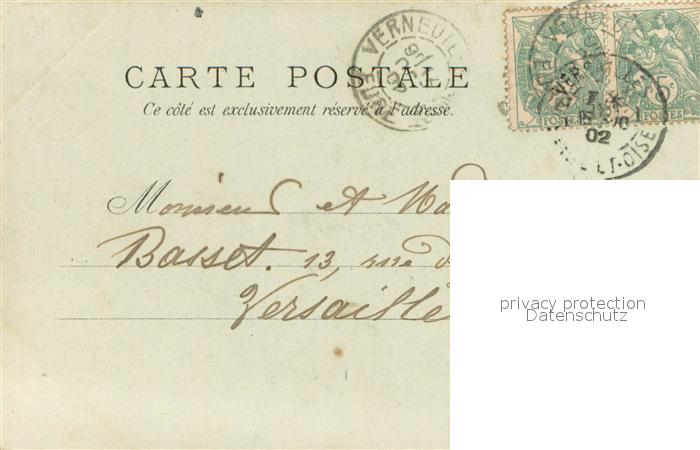 CARTE POSTALE
Ce côté est exclusivement réservé à l'adresse.
VERNEUIL
EURE
02
POSTES
5c
POSTES
Monsieur et Ma
Basset. 13, rue d
Versaille
privacy protection
Datenschutz